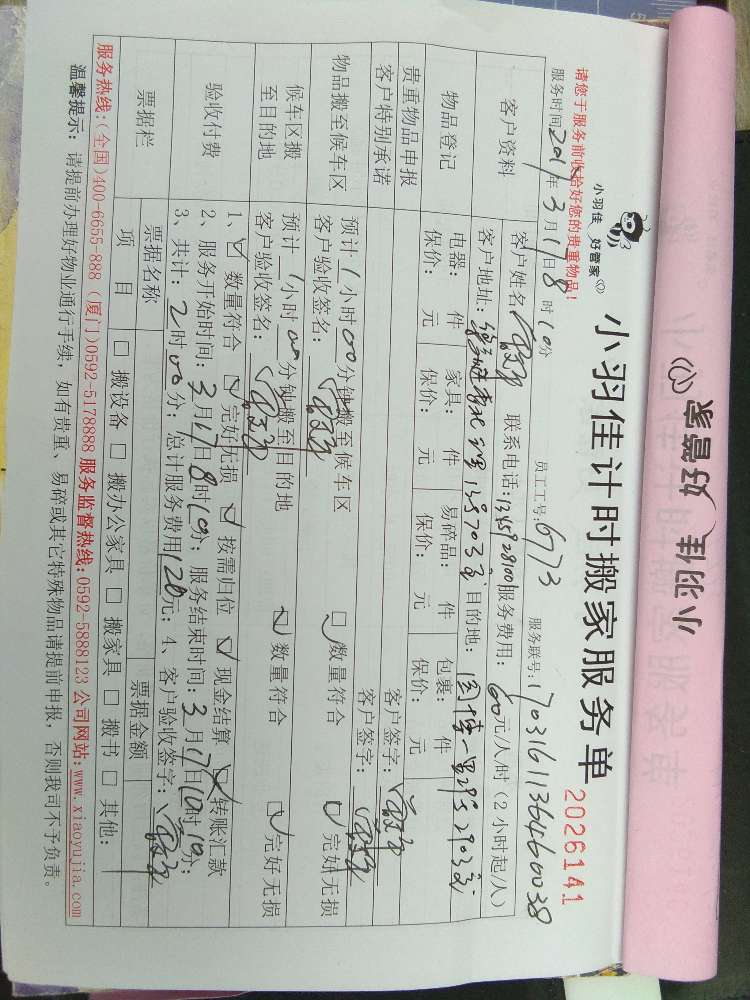 小羽佳 好管家
小羽佳 好管家
小羽佳计时搬家服务单
2026141
请您于服务前收拾好您的贵重物品!
员工工号: 6773 服务联号:
服务时间: 201 年 3 月 17 日 8 时 10 分
客户资料
客户姓名: 联系电话: 服务费用: 60 元/人/时 (2小时起/人)
客户地址: 目的地:
物品登记
电器: 件 家具: 件 易碎品: 件 包裹: 件
保价: 元 保价: 元 保价: 元 保价: 元
贵重物品申报 客户签字:
客户特别承诺 客户签字:
物品搬至候车区
预计: 1 小时 00 分钟搬至候车区 数量符合 完好无损
客户验收签名:
候车区搬至目的地
预计: 1 小时 00 分钟搬至目的地 数量符合 完好无损
客户验收签名:
验收付费
1、 数量符合 完好无损 按需归位 现金结算 转账汇款
2、服务开始时间: 3 月 17 日 8 时 10 分; 服务结束时间: 3 月 17 日 10 时 10 分;
3、共计: 2 时 00 分; 总计服务费用 120 元; 4、客户验收签字:
票据栏
票据名称 票据金额
项目 搬设备 搬办公家具 搬家具 搬书 其他:
服务热线:(全国)400-6655-888 (厦门)0592-5178888 服务监督热线:0592-5888123 公司网站:www.xiaoyujia.com
温馨提示: 请提前办理好物业通行手续, 如有贵重、易碎或其它特殊物品请提前申报, 否则我司不予负责。